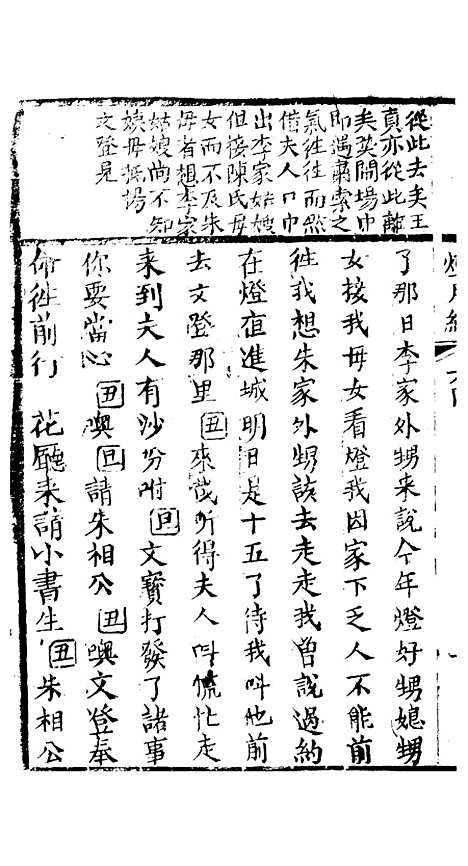 從此去矣王
真亦從此離
矣奖開場巾
即遇肅索之
氣徃徃而然
借夫人口巾
出李家姑嫂
但接陳氏母
女而不及朱
母者想李家
姑娘尚不知
姨母
文登見
了那日李家外甥来說今年燈好甥媳甥
女接我母女看燈我因家下乏人不能前
徃我想朱家外甥該去走走我曾說過約
在燈宵進城明日是十五了待我呌他前
去文登那里丑來哉听得夫人呌慌忙走
来到夫人有沙分咐旦文寶打發了諸事
你要當心丑噢旦請朱相公丑噢文登奉
命徃前行 花廳来請小書生丑朱相公